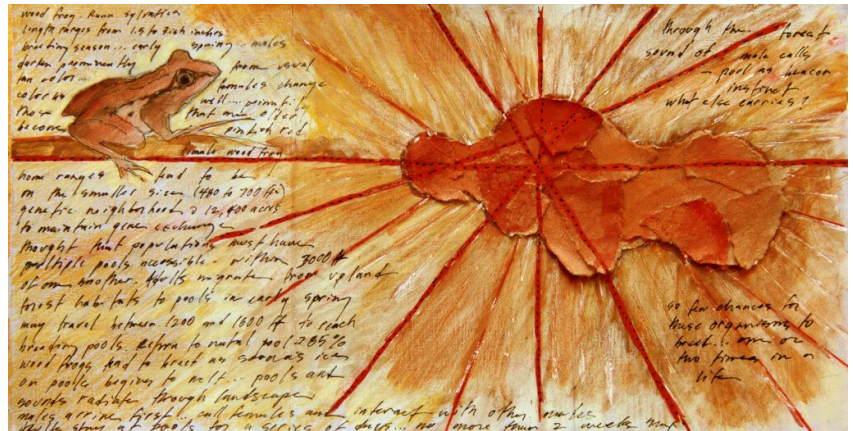 wood frog. Rana sylvatica
length ranges from 1.5 to 3.25 inches
breeding season... early spring... males
darken prominently from usual
tan color... females change
color as well... primarily
those that are older
become pinkish red
female wood frog
home ranges tend to be
on the smaller size (480 to 700 ft²)
genetic neighborhood 2 12,400 acres
to maintain gene exchange
thought that populations must have
multiple pools accessible. within 3000 ft
of one another. Adults migrate from upland
forest habitats to pools in early spring
may travel between 1200 and 1600 ft to reach
breeding pools. Return to natal pool 85%
wood frogs tend to breed as soon as ice
on pools begins to melt... pools and
sounds radiate through landscape
males arrive first... call females and interact with other males
adults stay at pools for a series of days... no more than 2 weeks max
through the forest
sound of male calls
pool as beacon
instinct
what else carries?
so few chances for
these organisms to
breed... one or
two times in a
life